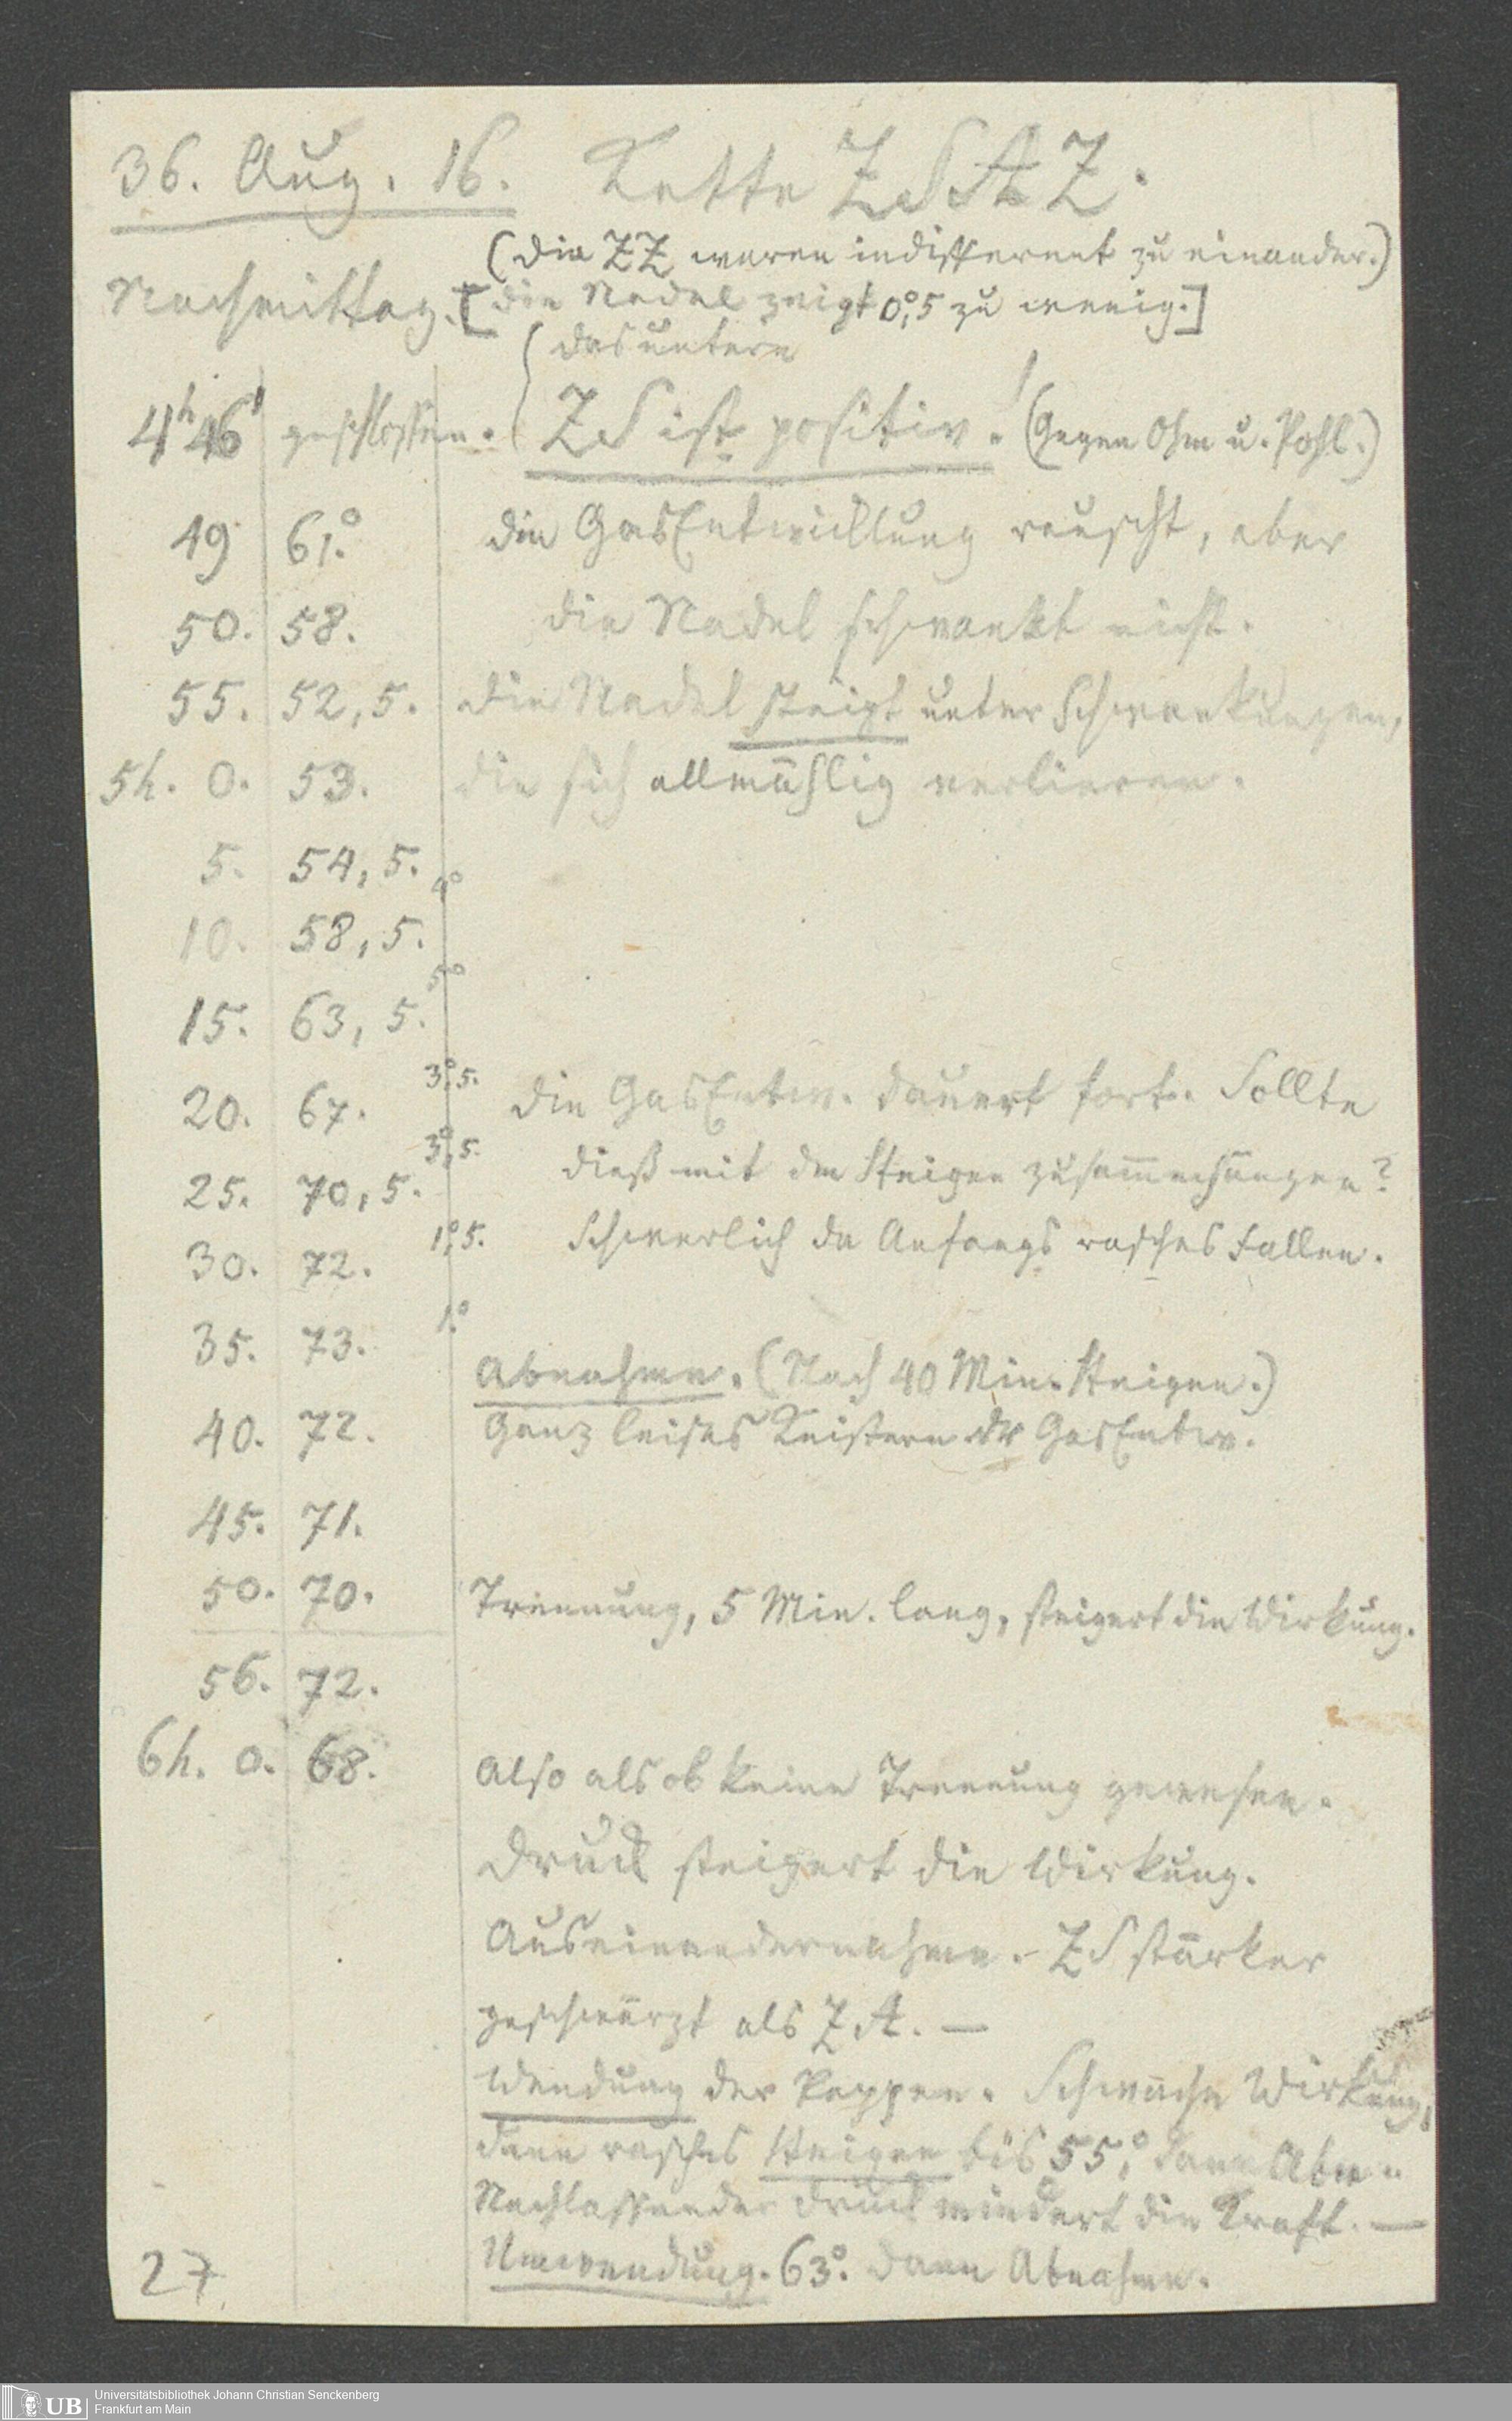 36. Aug. 16. Kette ZSAZ.
(die ZZ waren indifferent zu einander.)
Nachmittag. [die Nadel zeigt 0°,5 zu wenig.]
(das untere
4h 46' geschlossen. ZS ist positiv.! (Gegen Ohm u. Pohl.)
49 61.° die GasEntwicklung rauscht, aber
50. 58. die Nadel schwankt nicht.
55. 52,5. die Nadel steigt unter Schwankungen,
5h. 0. 53. die sich allmählig verlieren.
5. 54,5.
4°
10. 58,5.
5°
15. 63,5.
3°,5.
20. 67. die GasEntw. dauert fort. Sollte
3°,5. dieß mit dem Steigen zusam̄enhängen?
25. 70,5.
1°,5. Schwerlich da Anfangs rasches Fallen.
30. 72.
1.°
35. 73.
Abnahme. (Nach 40 Min. Steigen.)
40. 72. Ganz leises Knistern der GasEntw.
45. 71.
50. 70. Trennung, 5 Min. lang, steigert die Wirkung.
56. 72.
6h. 0. 68. Also als ob keine Trennung gewesen.
Druck steigert die Wirkung.
Auseinandernahme. - ZS stärker
geschwärzt als ZA. —
Wendung der Pappen. Schwache Wirkung,
dann rasches Steigen bis 55°, dann Abn..
Nachlassender Druck mindert die Kraft. —
Umwendung. 63°. dann Abnahme.
27.
Universitätsbibliothek Johann Christian Senckenberg
Frankfurt am Main
UB